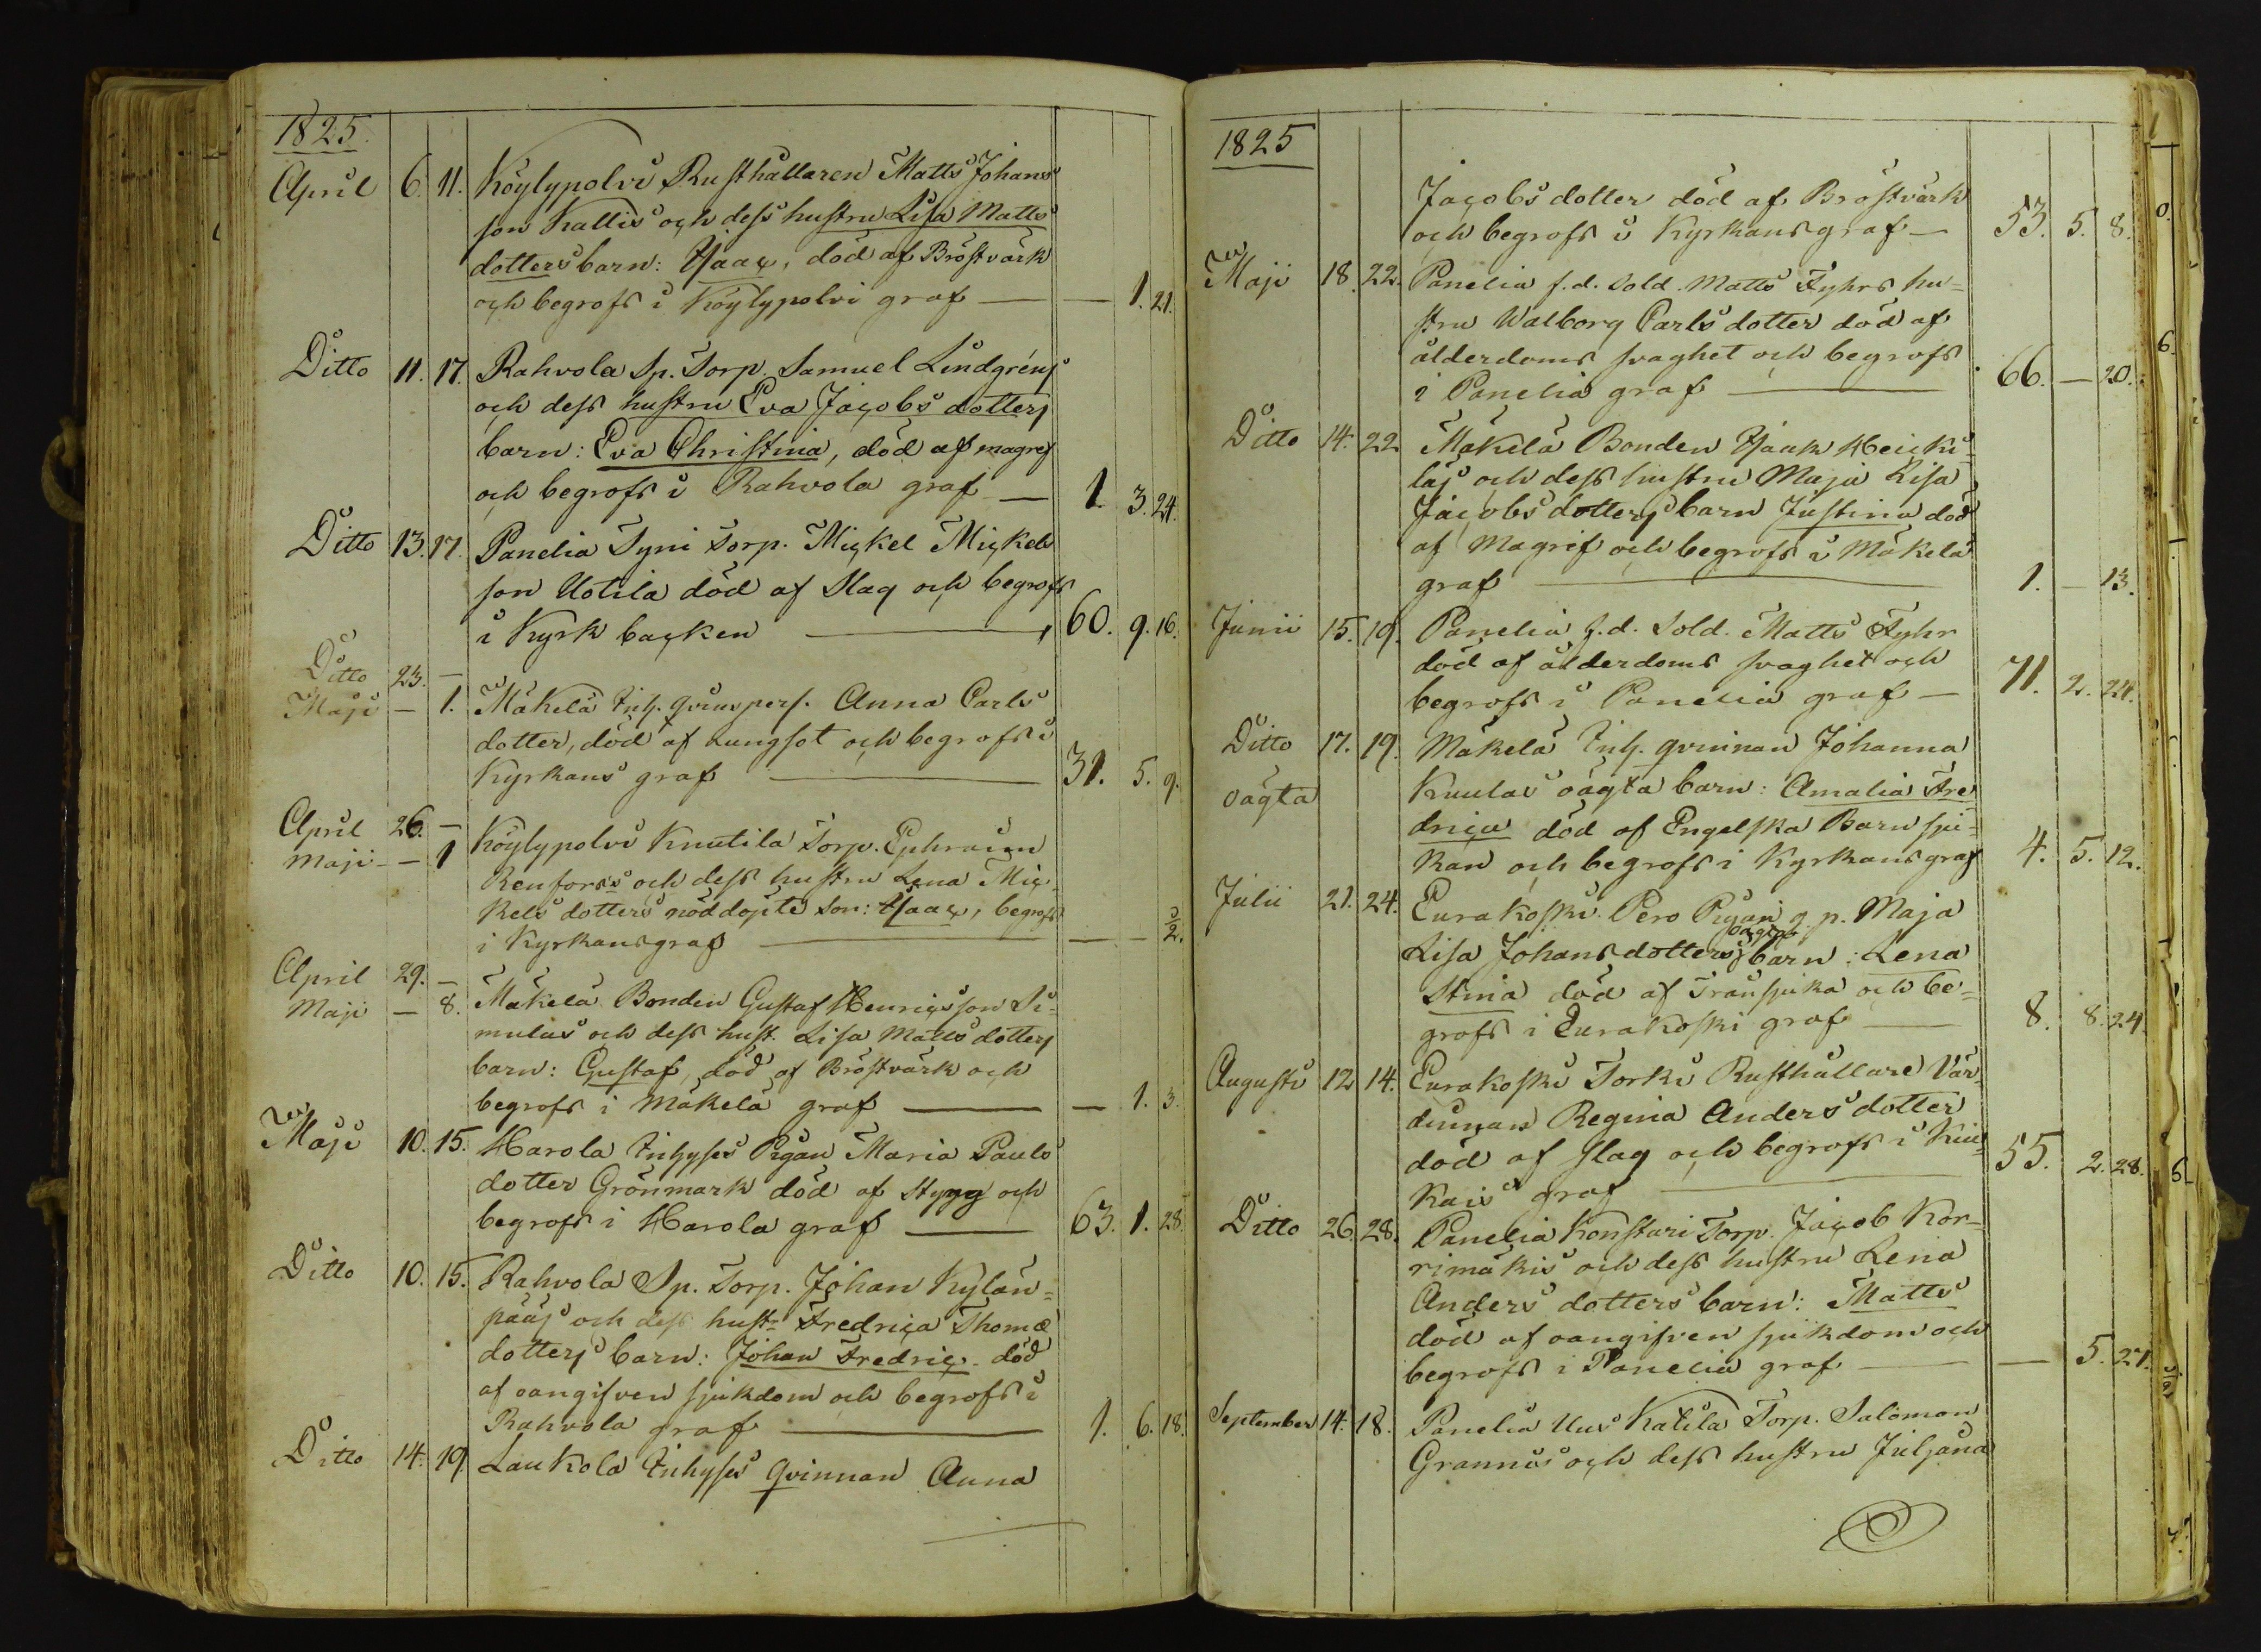 1825.
April 6. 11. Köylypolvi Rusthållaren Matts Johans
son Kallis och dess hustru Lisa Matts
dotters barn: Isaac, död af Bröstvärk
och begrofs i Köylypolvi graf — — 1. 21.
Ditto 11. 17. Rahvola Sp. Torp. Samuel Lindgréns
och dess hustru Eva Jacobs dotters
barn: Eva Christina, död af magref
och begrofs i Rahvola graf — 1 3. 24.
Ditto 13. 17. Panelia Syni Torp. Mickel Mickels
son Uotila död af Slag och begrofs
i Kyrk backen — 60. 9. 16.
Ditto 23. —
Maji — 1. Mäkelä Inh. qvins pers. Anna Carls
dotter, död af Lungsot och begrofs i
Kyrkans graf — 31. 5. 9.
April 26. —
Maji — 1 Köylypolvi Knutila Torp. Ephraim
Renforss och dess hustru Lena Mic-
kels dotters nöddöpte son: Isaac, begrofs
i Kyrkans graf — — — ½.
April 29. —
Maji — 8. Mäkelä Bonden Gustaf Henricsson Si-
mulas och dess hust. Lisa Matts dotters
barn: Gustaf, död af Bröstvärk och
begrofs i Mäkelä graf — — 1. 3.
Maji 10. 15. Harola Inhyses Pigan Maria Pauls
dotter Grönmark död af Stygg och
begrofs i Harola graf — 63. 1. 28.
Ditto 10. 15. Rahvola Sp. Torp. Johan Kylän=
pääs och dess hustr Fredrica Thomæ
dotters barn: Johan Fredric död
af oangifven sjukdom och begrofs i
Rahvola graf — 1. 6. 18.
Ditto 14. 19 Laukola Inhyses qvinnan Anna
1825
Jacobs dotter död af Bröstvärk
och begrofs i Kyrkans graf — 53. 5. 8.
Maji 18. 22. Panelia f.d. Sold. Matts Fyhrs hu=
stru Walborg Carls dotter död af
ålderdoms svaghet och begrofs
i Panelia graf — 66. — 20.
Ditto 14. 22 Mäkelä Bonden Isaak Heicki-
läs och dess hustru Maja Lisa
Jacobs dotters barn Justina död
af Magref och begrofs i Mäkelä
graf — 1. — 13.
Junii 15. 19. Panelia f.d. Sold. Matts Fyhr
död af ålderdoms svaghet och
begrofs i Panelia graf — 71. 2. 24.
Ditto 17. 19. Mäkelä Inh. qvinnan Johanna
oägta Knulas oägta barn: Amalia Fre
drica död af Engelska Barn sju=
kan och begrofs i Kyrkans graf 4. 5. 12.
Julii 21. 24. Eurakoski Pero Pigan q. p. Maja
Lisa Johans dotters oägta barn: Lena
Stina död af Transjuka och be=
grofs i Eurakoski graf — 8. 8. 24.
Augusti 12 14. Eurakoski Torki Rusthållare Vär-
dinnan Regina Anders dotter
död af slag och begrofs i Kiu
Kais graf — 55. 2. 28.
Ditto 26. 28. Panelia Konstari Torp. Jacob Kor-
rimäkis och dess hustru Lena
Anders dotters barn: Matts
död af oangifven sjukdom och
begrofs i Panelia graf — — 5. 27.
September 14. 18. Panelia Uus Katila Torp. Salomon
Grannis och dess hustru Juljana